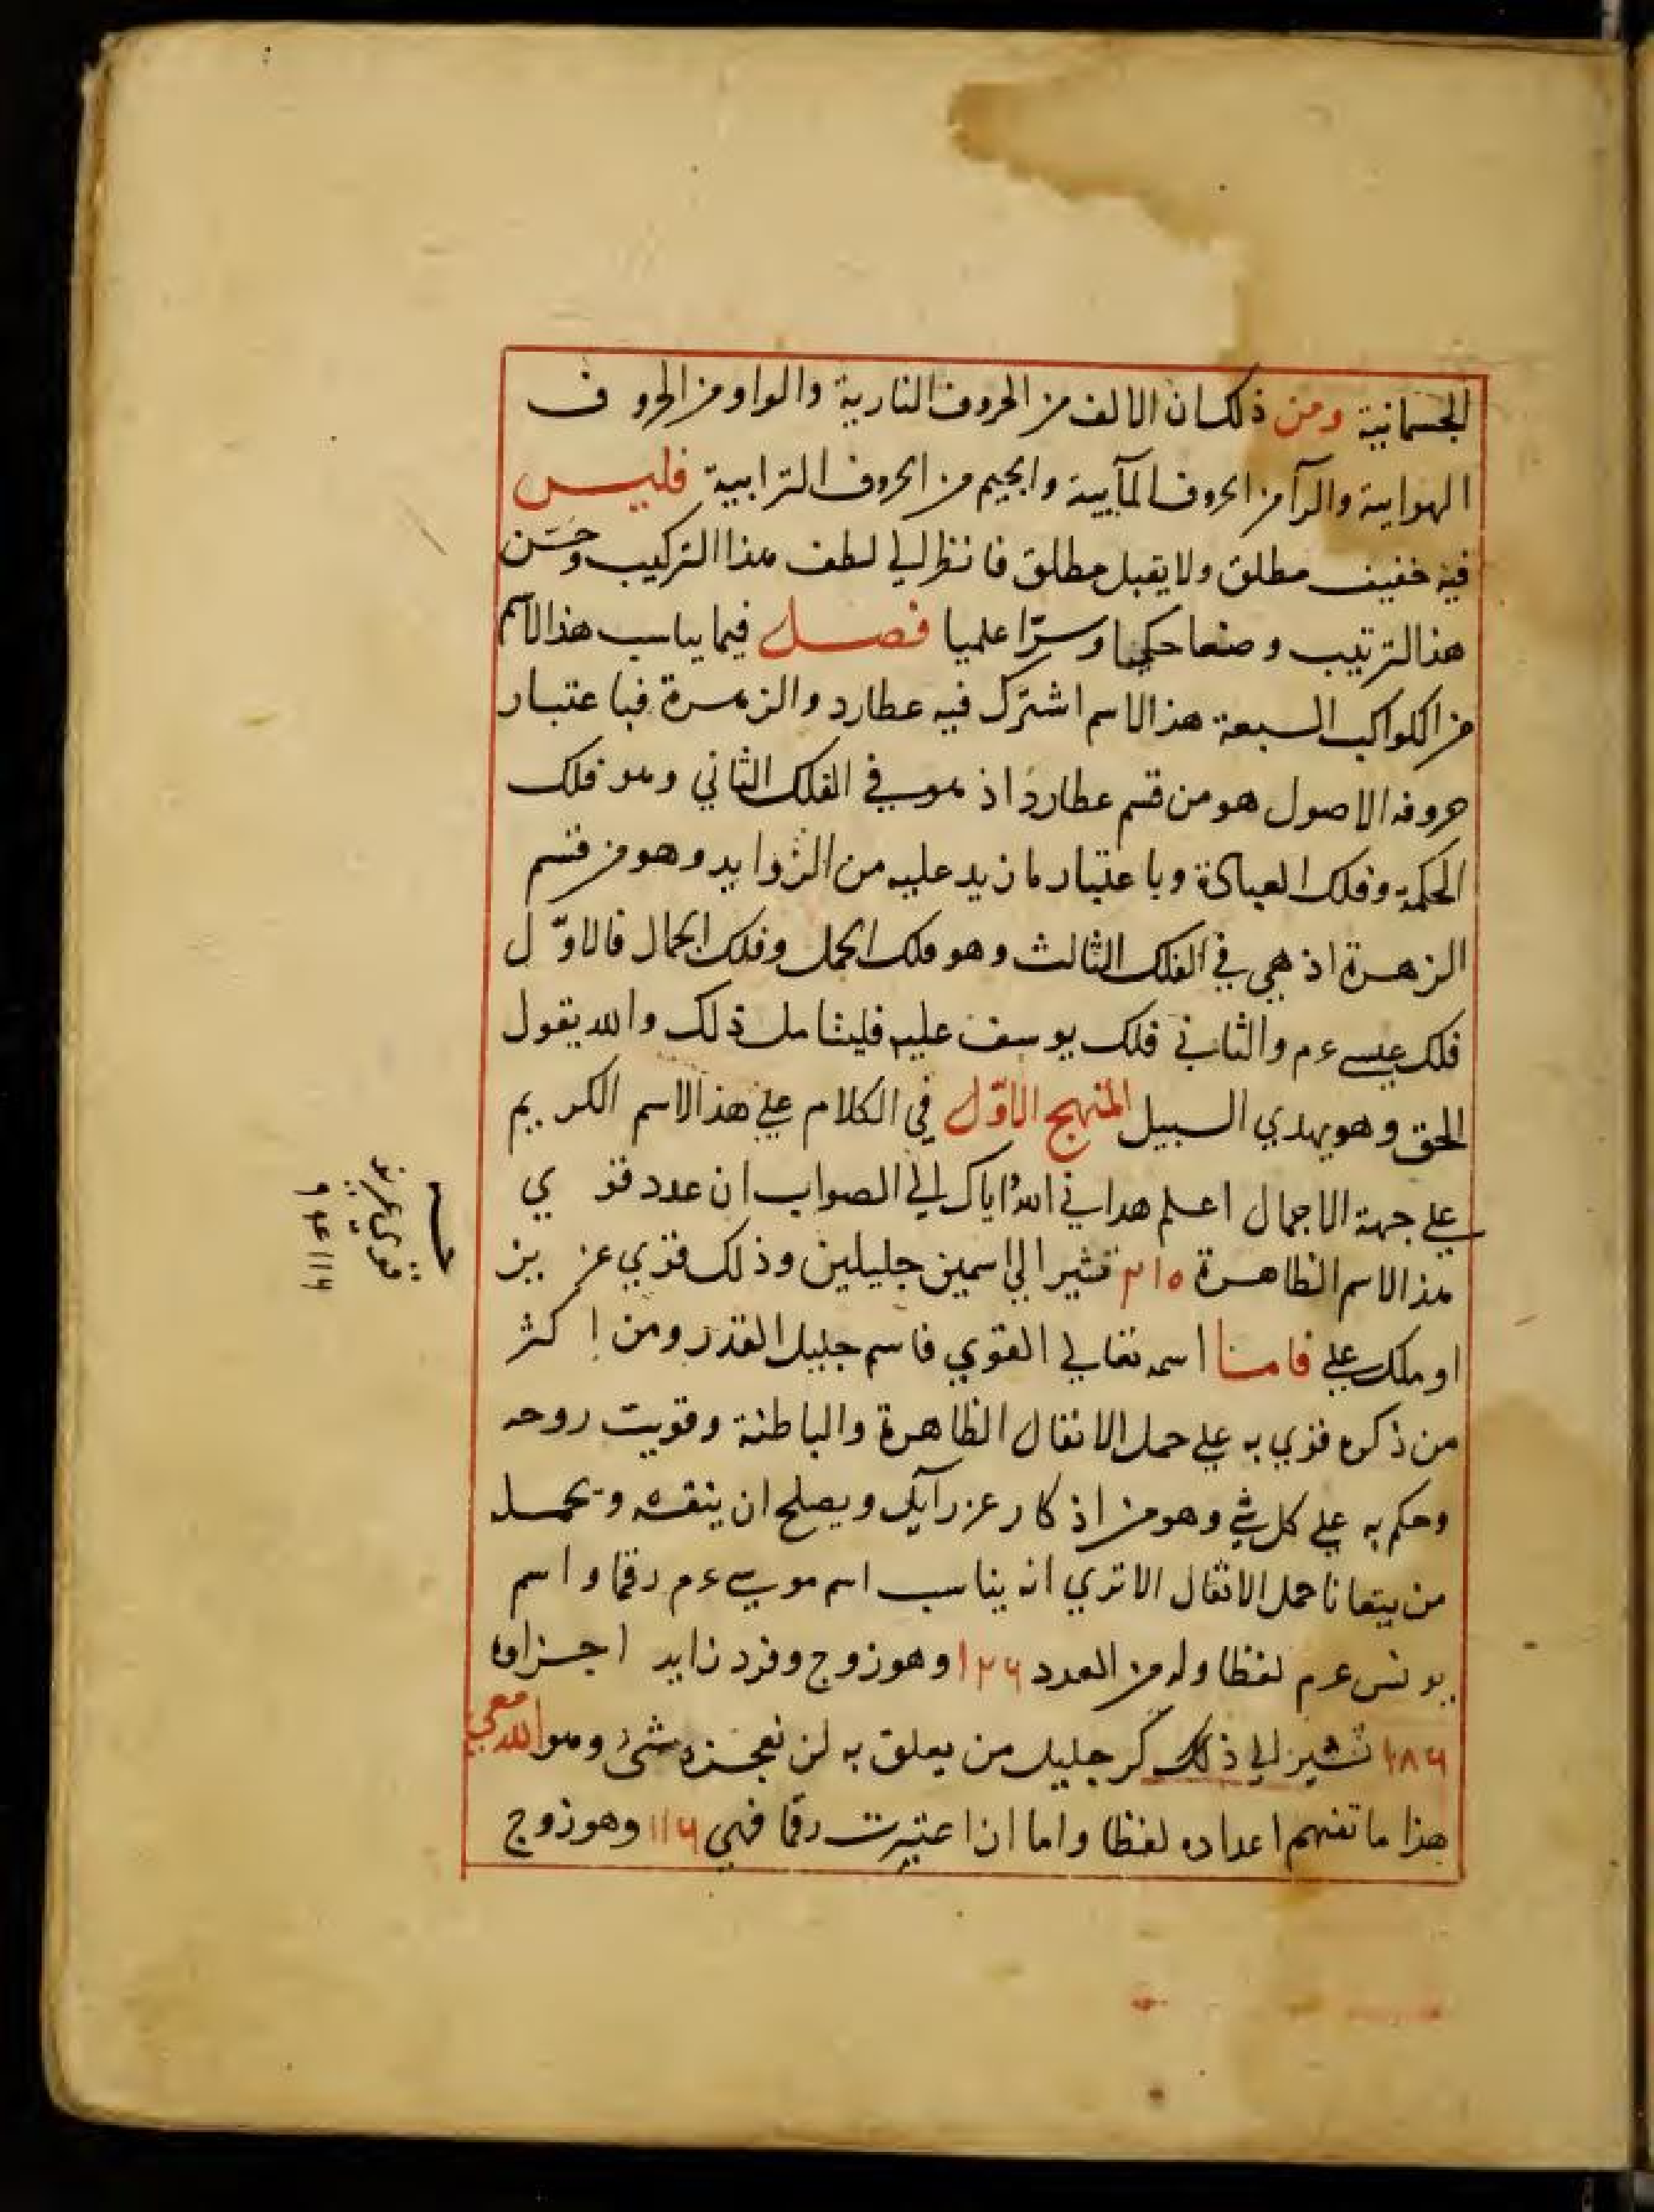 الجسمانية ومن ذلك ان الالف من الحروف النارية والواو من الحروف
الهوايية والرآ من الحروف المآيية والجيم من الحروف الترابية فليس
فيه خفيف مطلق ولا يقبل مطلق فانظر الي لطف هذا التركيب وحسن
هذا الترتيب وصنعا حكيما وسرّا علميا فصل فيما يناسب هذا الاسم
من الكواكب السبعة هذا الاسم اشترك فيه عطارد والزهرة فباعتبار
حروفه الاصول هو من قسم عطارد اذ هو في الفلك الثاني وهو فلك
الحكمة وفلك العبادة وباعتبار ما زيد عليه من الزوايد وهو من قسم
الزهرة اذ هي في الفلك الثالث وهو فلك الحمل وفلك الجمال فالاوّل
فلك عيسي ءم والثاني فلك يوسف عليه فليتامل ذلك والله يقول
الحق وهو يهدي السبيل المنهج الاوّل في الكلام علي هذا الاسم الكريم
علي جهة الاجمال اعلم هداني الله اياك الي الصواب ان عدد قوي
هذا الاسم الظاهرة ٢١٥ تشير الي اسمين جليلين وذلك قوي عزيز
او ملك علي فامنا اسمه تعالي القوي فاسم جليل القدر ومن اكثر
من ذكره قوي به علي حمل الاثقال الظاهرة والباطنة وقويت روحه
وحكم به علي كل شي وهو من اذكار عزرآيل ويصلح ان ينقشه ويحمله
من يتعانا حمل الاثقال الا تري انه يناسب اسم موسي ءم رقما واسم
يونس ءم لفظا وله من العدد ١٢٦ وهو زوج وفرد زايد اجزاوه
١٨٦ تشير الي ذلك كر جليل من يعلق به لن يعجزه شئ وهو الله معي
هذا ما تفهم اعداده لفظا واما ان اعتبرت رقما فهي ١١٦ وهو زوج
قوي عزيز
١١٦ ٩٤